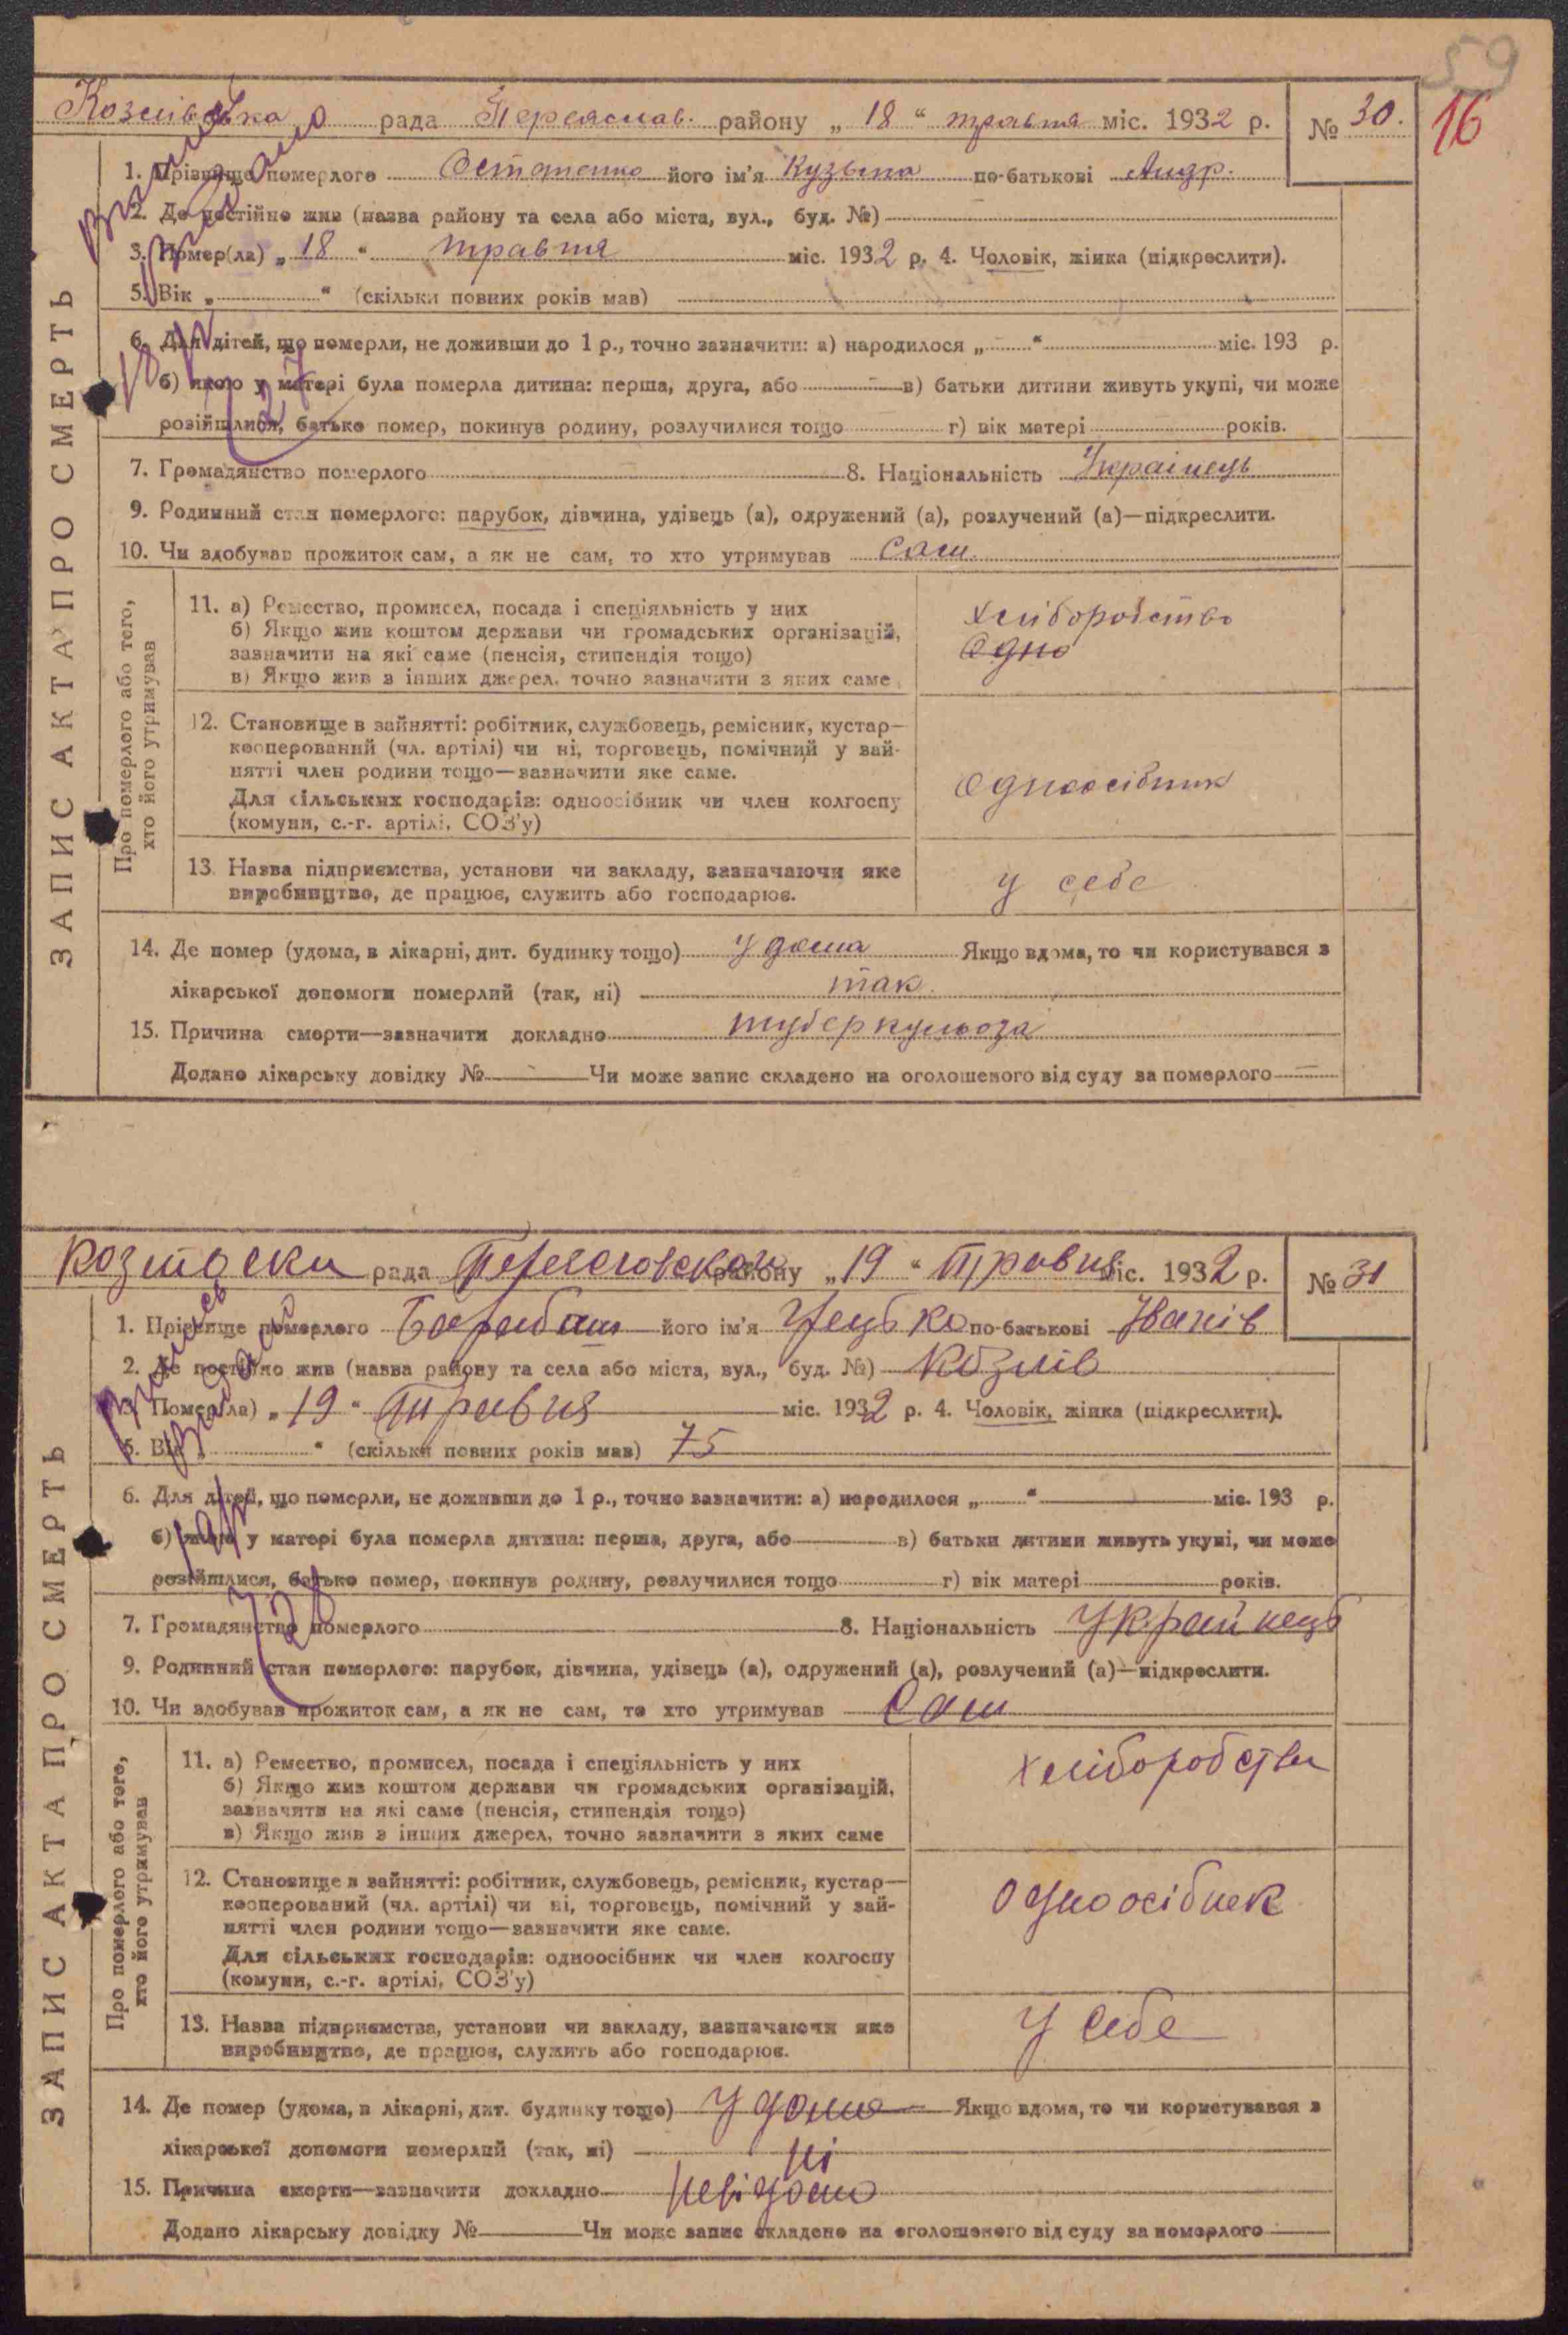 59
16
Козлівська рада Переяслав. району „ 18 “ травня міс. 1932 р. № 30.
1. Прізвище померлого Остапенко його ім'я Кузьма по-батькові Андр.
2. Де постійно жив (назва району та села або міста, вул., буд. №)
3. Помер(ла) „ 18 “ травня міс. 1932 р. 4. Чоловік, жінка (підкреслити).
5. Вік „ “ (скільки повних років мав)
6. Для дітей, що померли, не доживши до 1 р., точно зазначити: а) народилося „ “ міс. 193 р.
б) якою у матері була померла дитина: перша, друга, або — в) батьки дитини живуть укупі, чи може
розійшлися, батько помер, покинув родину, розлучилися тощо г) вік матері років.
7. Громадянство померлого 8. Національність Українець
9. Родинний стан померлого: парубок, дівчина, удівець (а), одружений (а), розлучений (а)—підкреслити.
10. Чи здобував прожиток сам, а як не сам, то хто утримував Сам.
ЗАПИС АКТА ПРО СМЕРТЬ
Про померлого або того,
хто його утримував
11. а) Ремество, промисел, посада і спеціяльність у них
б) Якщо жив коштом держави чи громадських організацій,
зазначити на які саме (пенсія, стипендія тощо)
в) Якщо жив з інших джерел, точно зазначити з яких саме
Хліборобство
Одно
12. Становище в зайнятті: робітник, службовець, ремісник, кустар—
кооперований (чл. артілі) чи ні, торговець, помічний у зай-
нятті член родини тощо—зазначити яке саме.
Для сільських господарів: одноосібник чи член колгоспу
(комуни, с.-г. артілі, СОЗ'у)
Одноосібник
13. Назва підприємства, установи чи закладу, зазначаючи яке
виробництво, де працює, служить або господарює.
у себе
14. Де помер (удома, в лікарні, дит. будинку тощо) У дома Якщо вдома, то чи користувався з
лікарської допомоги померлий (так, ні) так.
15. Причина смерти—зазначити докладно туберкульоза
Додано лікарську довідку № — Чи може запис складено на оголошеного від суду за померлого —
рада району „ 19 “ Травня міс. 1932 р. № 31
1. Прізвище померлого Барабаш його ім'я по-батькові Іванів
2. Де постійно жив (назва району та села або міста, вул., буд. №) Козлів
3. Помер(ла) „ 19 “ Травня міс. 1932 р. 4. Чоловік, жінка (підкреслити).
5. Вік „ “ (скільки повних років мав) 75
6. Для дітей, що померли, не доживши до 1 р., точно зазначити: а) народилося „ “ міс. 193 р.
б) якою у матері була померла дитина: перша, друга, або — в) батьки дитини живуть укупі, чи може
розійшлися, батько помер, покинув родину, розлучилися тощо г) вік матері років.
7. Громадянство померлого 8. Національність Украйнець
9. Родинний стан померлого: парубок, дівчина, удівець (а), одружений (а), розлучений (а)—підкреслити.
10. Чи здобував прожиток сам, а як не сам, то хто утримував Сам
ЗАПИС АКТА ПРО СМЕРТЬ
Про померлого або того,
хто його утримував
11. а) Ремество, промисел, посада і спеціяльність у них
б) Якщо жив коштом держави чи громадських організацій,
зазначити на які саме (пенсія, стипендія тощо)
в) Якщо жив з інших джерел, точно зазначити з яких саме
Хліборобства
12. Становище в зайнятті: робітник, службовець, ремісник, кустар—
кооперований (чл. артілі) чи ні, торговець, помічний у зай-
нятті член родини тощо—зазначити яке саме.
Для сільських господарів: одноосібник чи член колгоспу
(комуни, с.-г. артілі, СОЗ'у)
Одноосібнек
13. Назва підприємства, установи чи закладу, зазначаючи яке
виробництво, де працює, служить або господарює.
У себе
14. Де помер (удома, в лікарні, дит. будинку тощо) У дома Якщо вдома, то чи користувався з
лікарської допомоги померлий (так, ні) ні
15. Причина смерти—зазначити докладно невідомо
Додано лікарську довідку № — Чи може запис складено на оголошеного від суду за померлого —